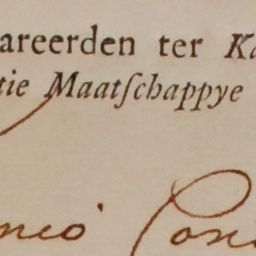 areerden ter Ka
tie Maatſchappye
nio Con